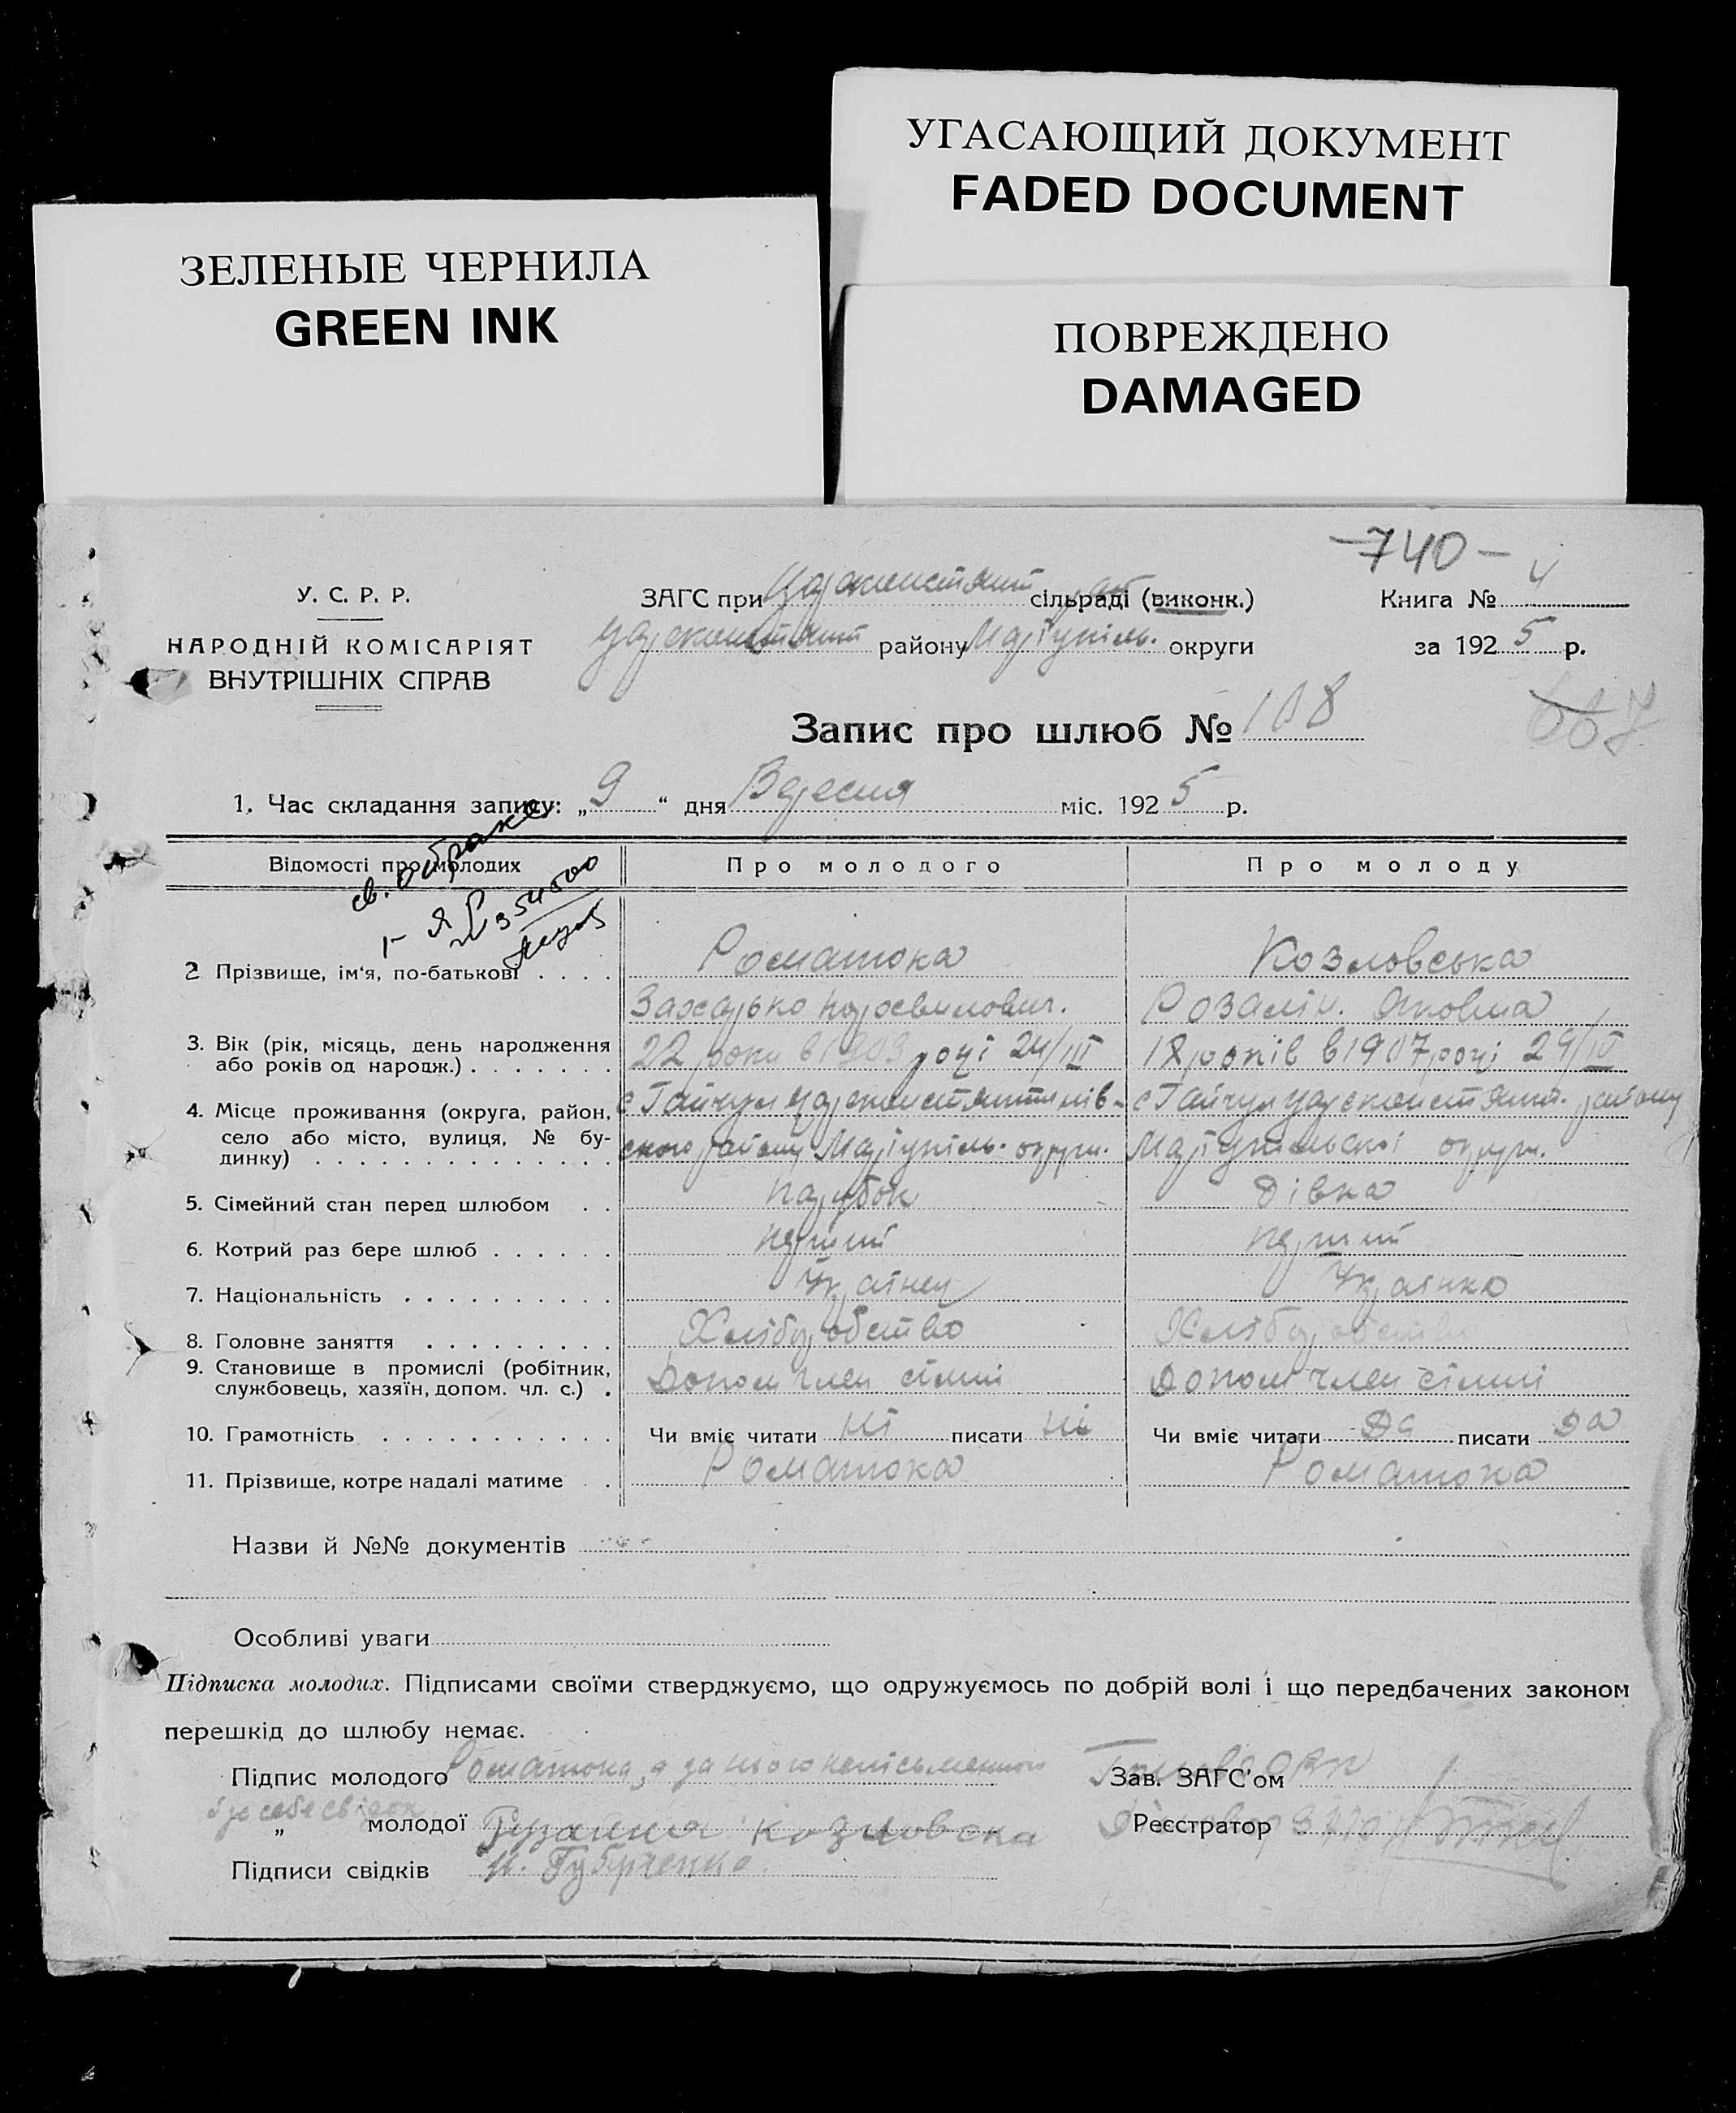 УГАСАЮЩИЙ ДОКУМЕНТ
FADED DOCUMENT
ЗЕЛЕНЫЕ ЧЕРНИЛА
GREEN INK
ПОВРЕЖДЕНО
DAMAGED
-740-
У. С. Р. Р.
НАРОДНІЙ КОМІСАРІЯТ
ВНУТРІШНІХ СПРАВ
ЗАГС при Цареконстянт сільраді (виконк.)
Царсконстянт району Маріупіль. округи
Книга № 4
за 1925 р.
667
Запис про шлюб № 108
1. Час складання запису: „9“ дня Вересня міс. 1925 р.
св. о браке
1- я
Відомості про молодих
Про молодого
Про молоду
2 Прізвище, ім'я, по-батькові . . . . Романюка Козловська
Захарько Розалія. Яковна
3. Вік (рік, місяць, день народження
або років од народж.) . . . . . . . 22 роки в 1903 році 24/III 18 років в 1907 році 29/IV
4. Місце проживання (округа, район, с Гайчул Царсконстянтинів- с Гайчул Царсконстянт. району
село або місто, вулиця, № бу-
динку) . . . . . . . . . . . . . . ского району Маріупіль. округи. Маріупільскоі округи.
5. Сімейний стан перед шлюбом . . парубок дівка
6. Котрий раз бере шлюб . . . . . . перший перший
7. Національність . . . . . . . . . . Українец Українка
8. Головне заняття . . . . . . . . . Хліборобство Хліборобство
9. Становище в промислі (робітник,
службовець, хазяїн, допом. чл. с.) . Допом член сімиї Допом член сімиї
10. Грамотність . . . . . . . . . . . Чи вміє читати ні писати ні Чи вміє читати Да писати да
11. Прізвище, котре надалі матиме . . Романюка Романюка
Назви й №№ документів
Особливі уваги
Підписка молодих. Підписами своїми стверджуємо, що одружуємось по добрій волі і що передбачених законом
перешкід до шлюбу немає.
Підпис молодого Романюка, а за нього неписьменного Зав. ЗАГС'ом
„ молодої козловска Реєстратор
Підписи свідків